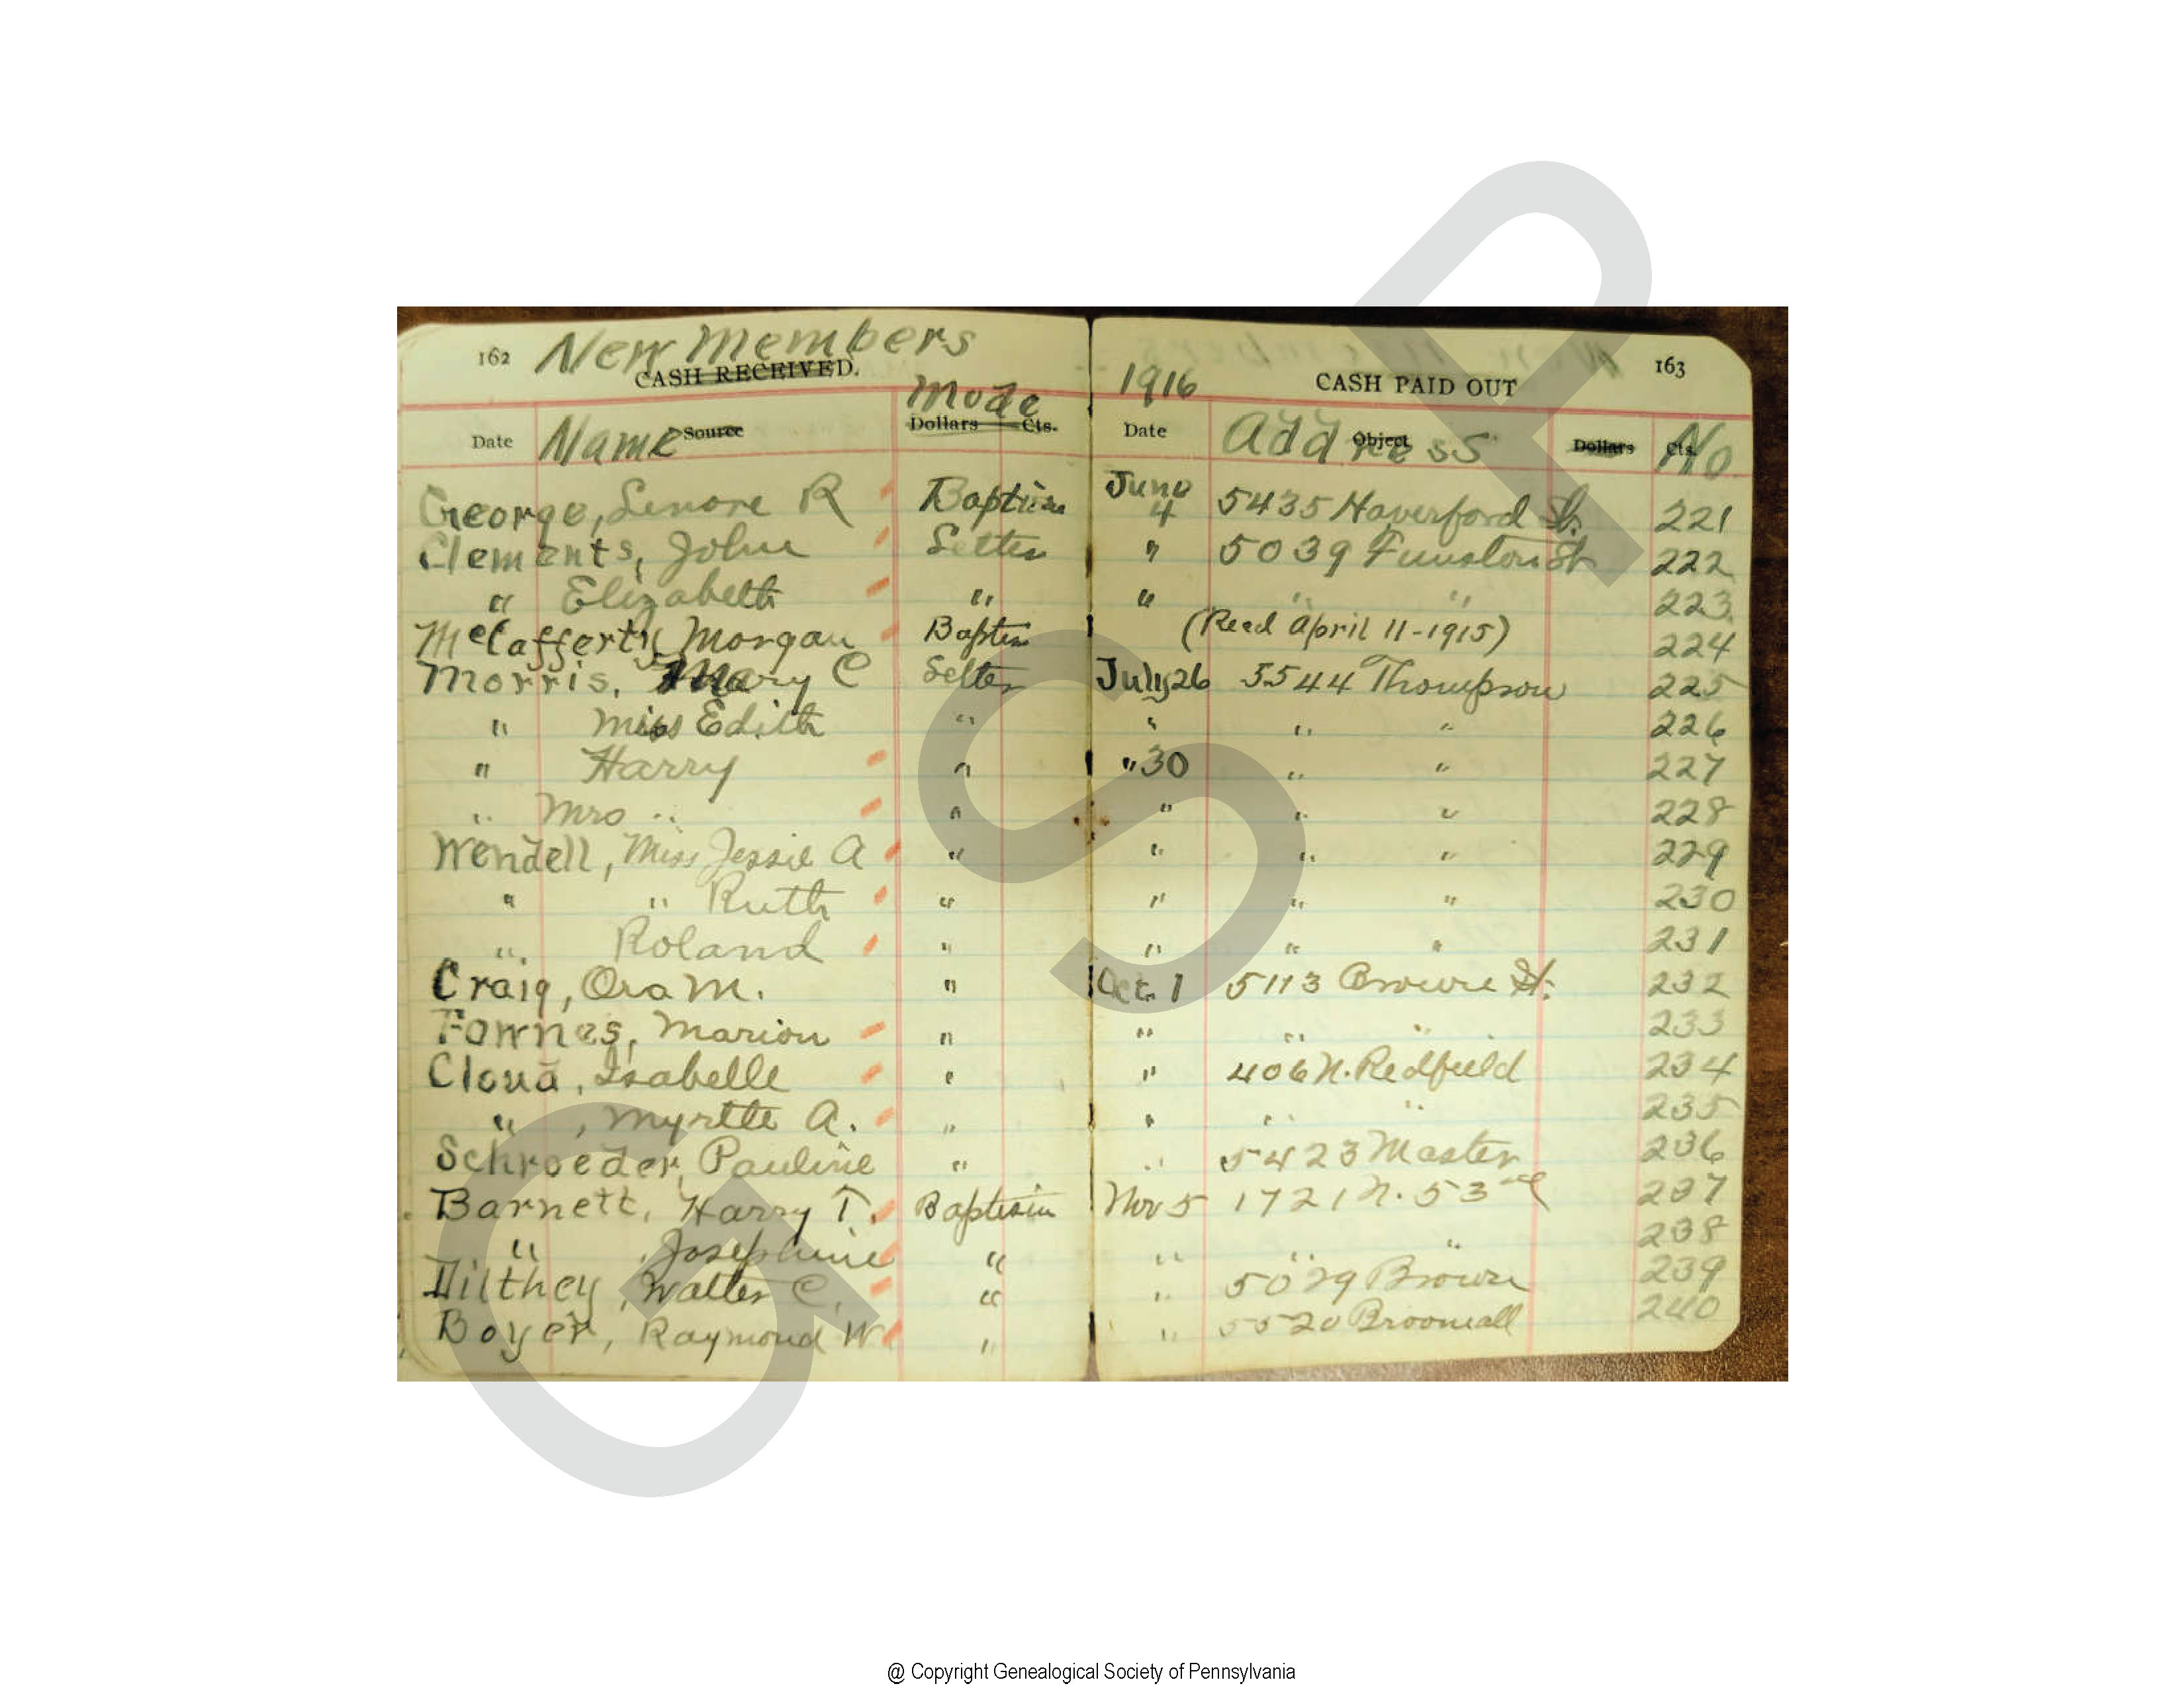 162 New Members 163
CASH RECEIVED. 1916 CASH PAID OUT
Mode
Date Name Source Dollars Cts. Date Address Object Dollars Cts. No
George, Lenore R Baptism June 4 5435 Haverford St. 221
Clements, John Letter " 5039 Funston St 222
" Elizabeth " " " " 223
McCafferty Morgan Baptism (Recd April 11-1915) 224
Morris, Mary C Letter July 26 5544 Thompson 225
" Miss Edith " " " " 226
" Harry " " 30 " " 227
" Mrs " " " " " 228
Wendell, Miss Jessie A " " " " 229
" " Ruth " " " " 230
" Roland " " " " 231
Craig, Ora M. " Oct 1 5113 Brown St. 232
Fownes, Marion " " " " 233
Cloud, Isabelle " " 406 N. Redfield 234
" , Myrtle A. " " " " 235
Schroeder, Pauline " " 5423 Master 236
Barnett, Harry T. Baptism Nov 5 1721 N. 53rd 237
" , Josephine " " " " 238
Dilthey, Walter C. " " 5029 Brown 239
Boyer, Raymond W " " 5520 Broomall 240
GSP
@ Copyright Genealogical Society of Pennsylvania